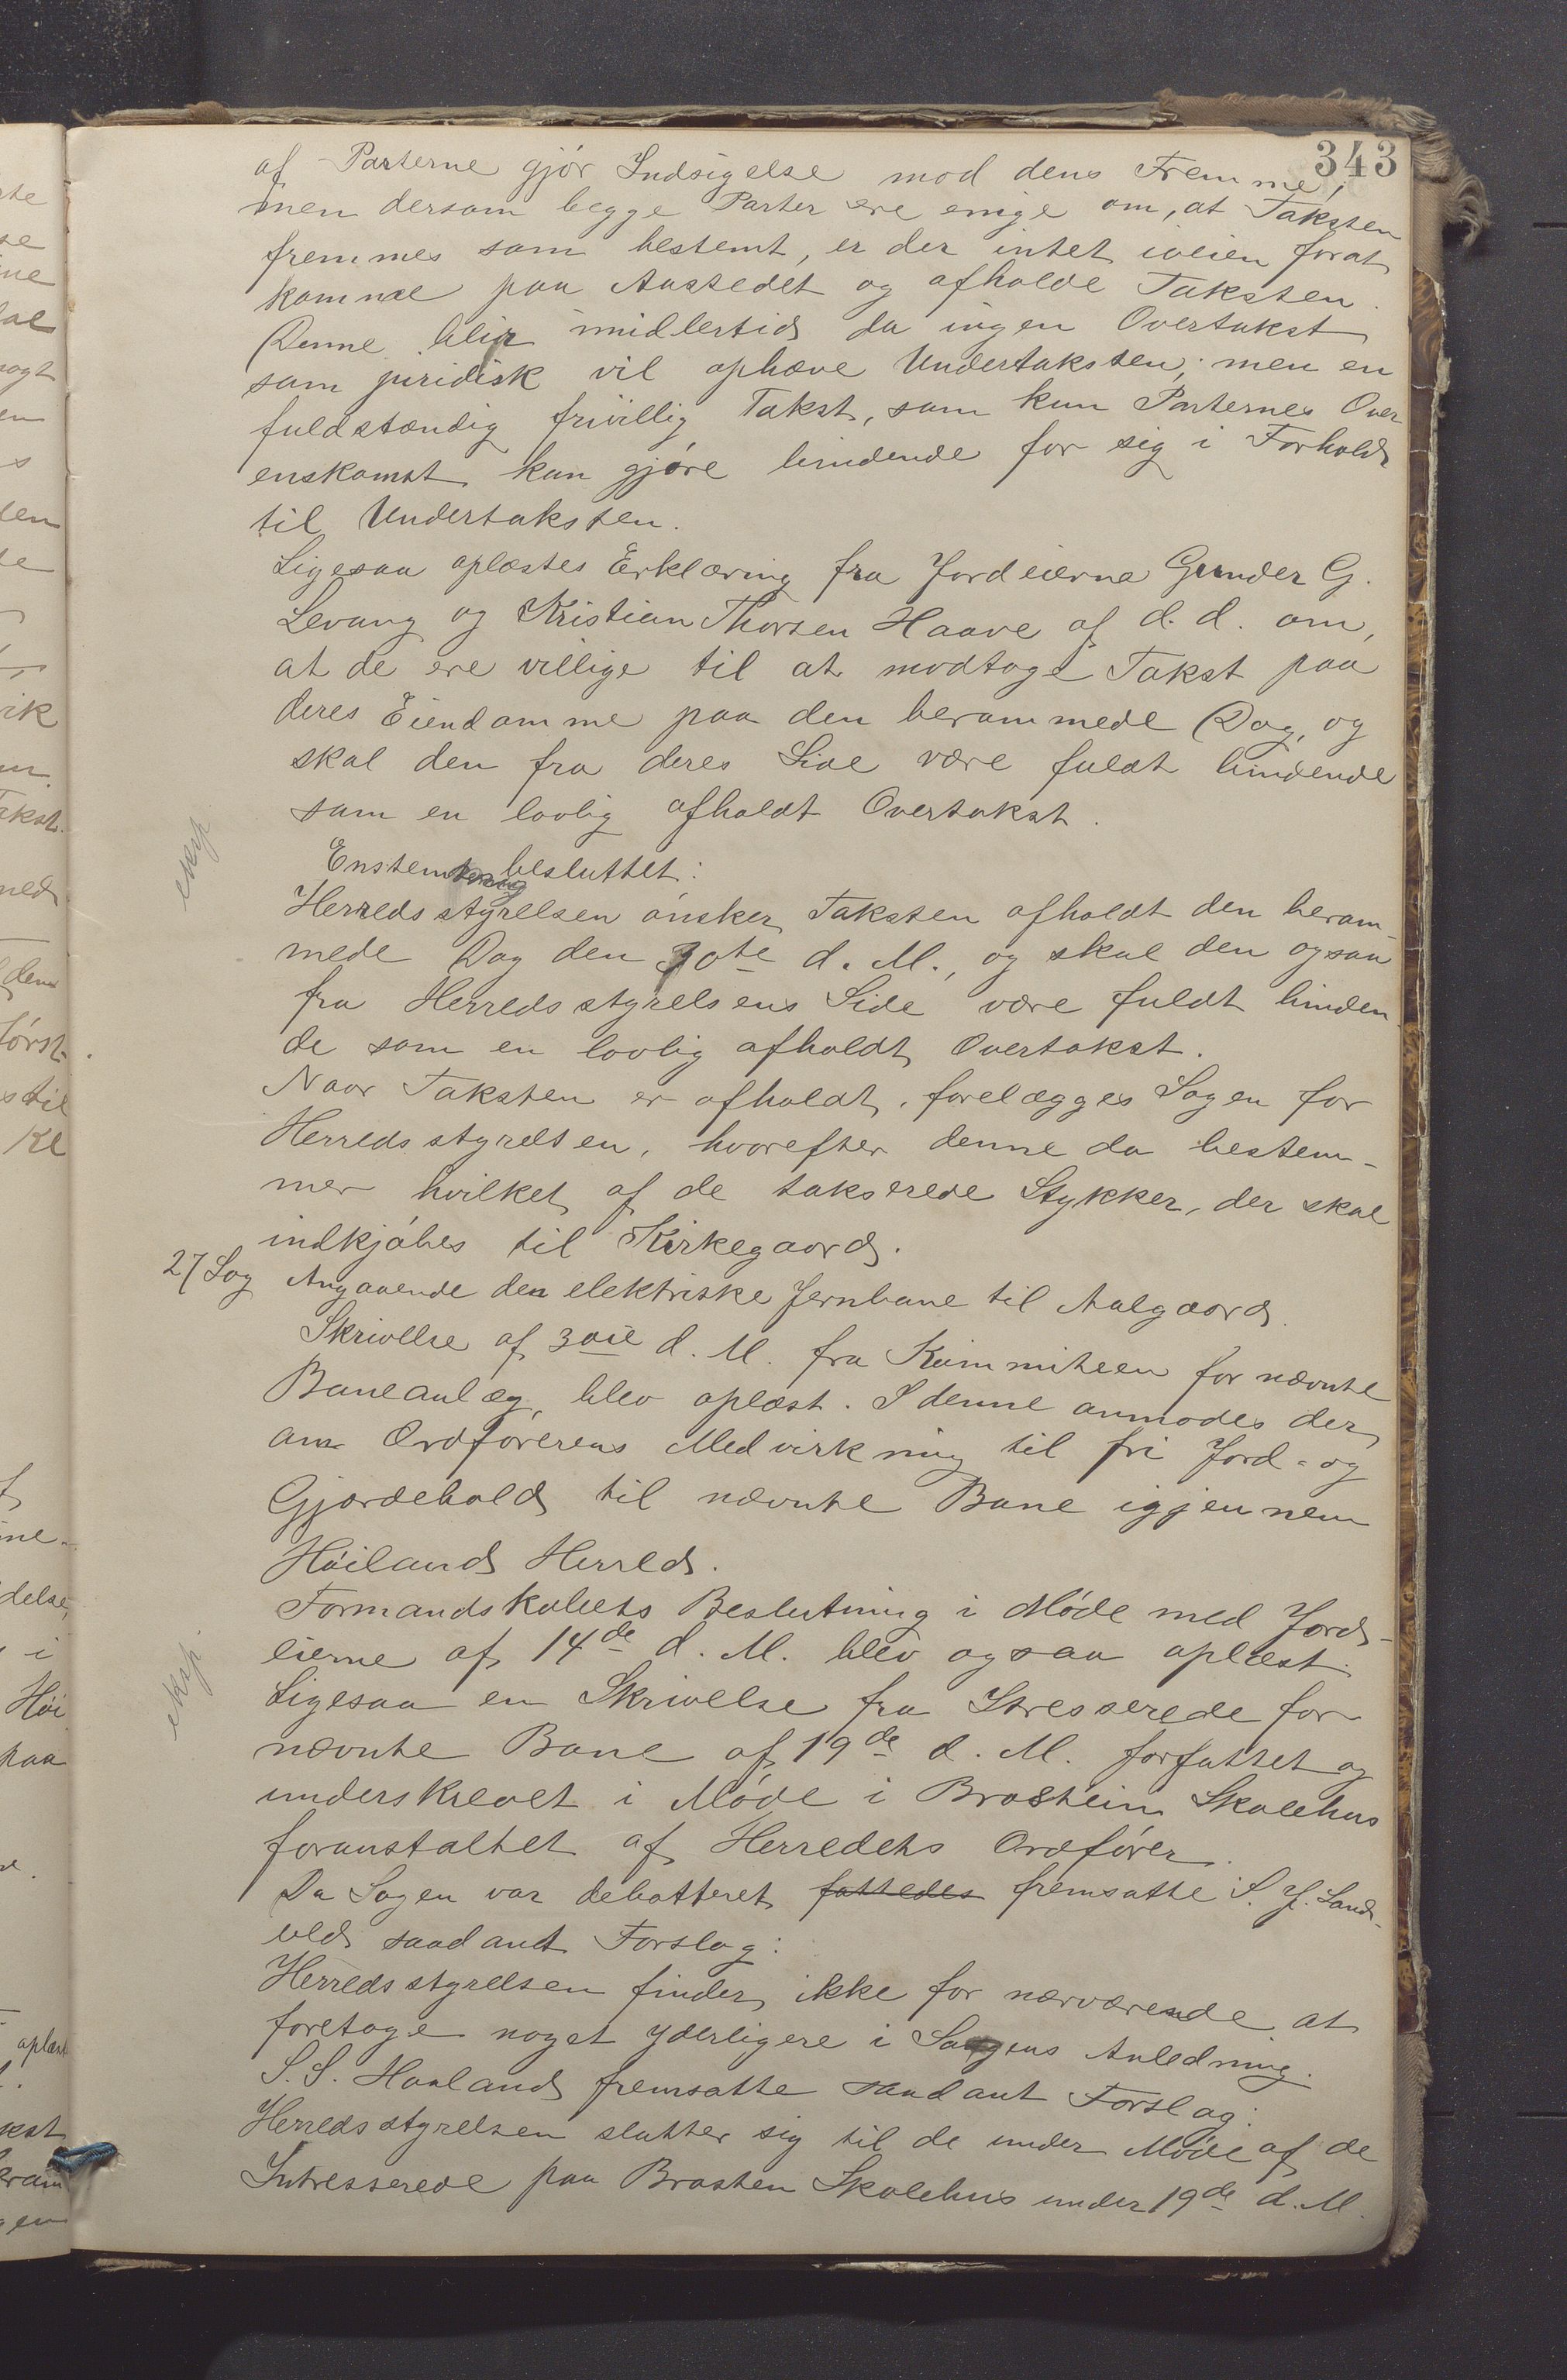 343
af Parterne gjör Indsigelse mod dens Fremme,
men dersom begge Parter ere enige om, at Taksten
fremmes som bestemt, er der intet iveien forat
komme paa Aastedet og afholde Taksten.
Denne blir imidlertid da ingen Overtakst
som juridisk vil ophæve Undertaksten; men en
fuldstændig frivillig Takst, som kun Parternes Over
enskomst kan gjöre bindende for sig i Forhold
til Undertaksten.
Ligesaa oplæstes Erklæring fra Jordeierne Gunder G.
Levang og Kristian Thorsen Haave af d. d. om,
at de ere villige til at modtage Takst paa
deres Eiendomme paa den berammede Dag, og
skal den fra deres Side være fuldt bindende
som en lovlig afholdt Overtakst.
eksp
Enstemmig besluttet:
Herredsstyrelsen önsker Taksten afholdt den beram-
mede Dag den 30te d. M., og skal den ogsaa
fra Herredsstyrelsens Side være fuldt binden
de som en lovlig afholdt Overtakst.
Naar Taksten er afholdt, forelægges Sagen for
Herredsstyrelsen, hvorefter denne da bestem-
mer hvilket af de takserede Stykker, der skal
indkjöbes til Kirkegaard.
27 Sag Angaaende den elektriske Jernbane til Aalgaard.
Skrivelse af 3die d. M. fra Kommiteen for nævnte
Baneanlæg, blev oplæst. I denne anmodes der
om Ordförerens Medvirkning til fri Jord- og
Gjærdehold til nævnte Bane igjennem
Höilands Herred.
Formandskabets Beslutning i Möde med Jord-
eierne af 14de d. M. blev ogsaa oplæst.
eksp.
Ligesaa en Skrivelse fra Itresserede for
nævnte Bane af 19de d. M. forfattet og
underskrevet i Möde i Brostein Skolehus
foranstaltet af Herredets Ordförer.
Da Sagen var debatteret fattedes fremsatte S. J. Sand-
ved saadant Forslag:
Herredsstyrelsen finder ikke for nærværende at
foretage noget yderligere i Sagens Anledning.
S. S. Haaland fremsatte saadant Forslag:
Herredsstyrelsen slutter sig til de under Möde af de
Intresserede paa Brosten Skolehus under 19de d. M.